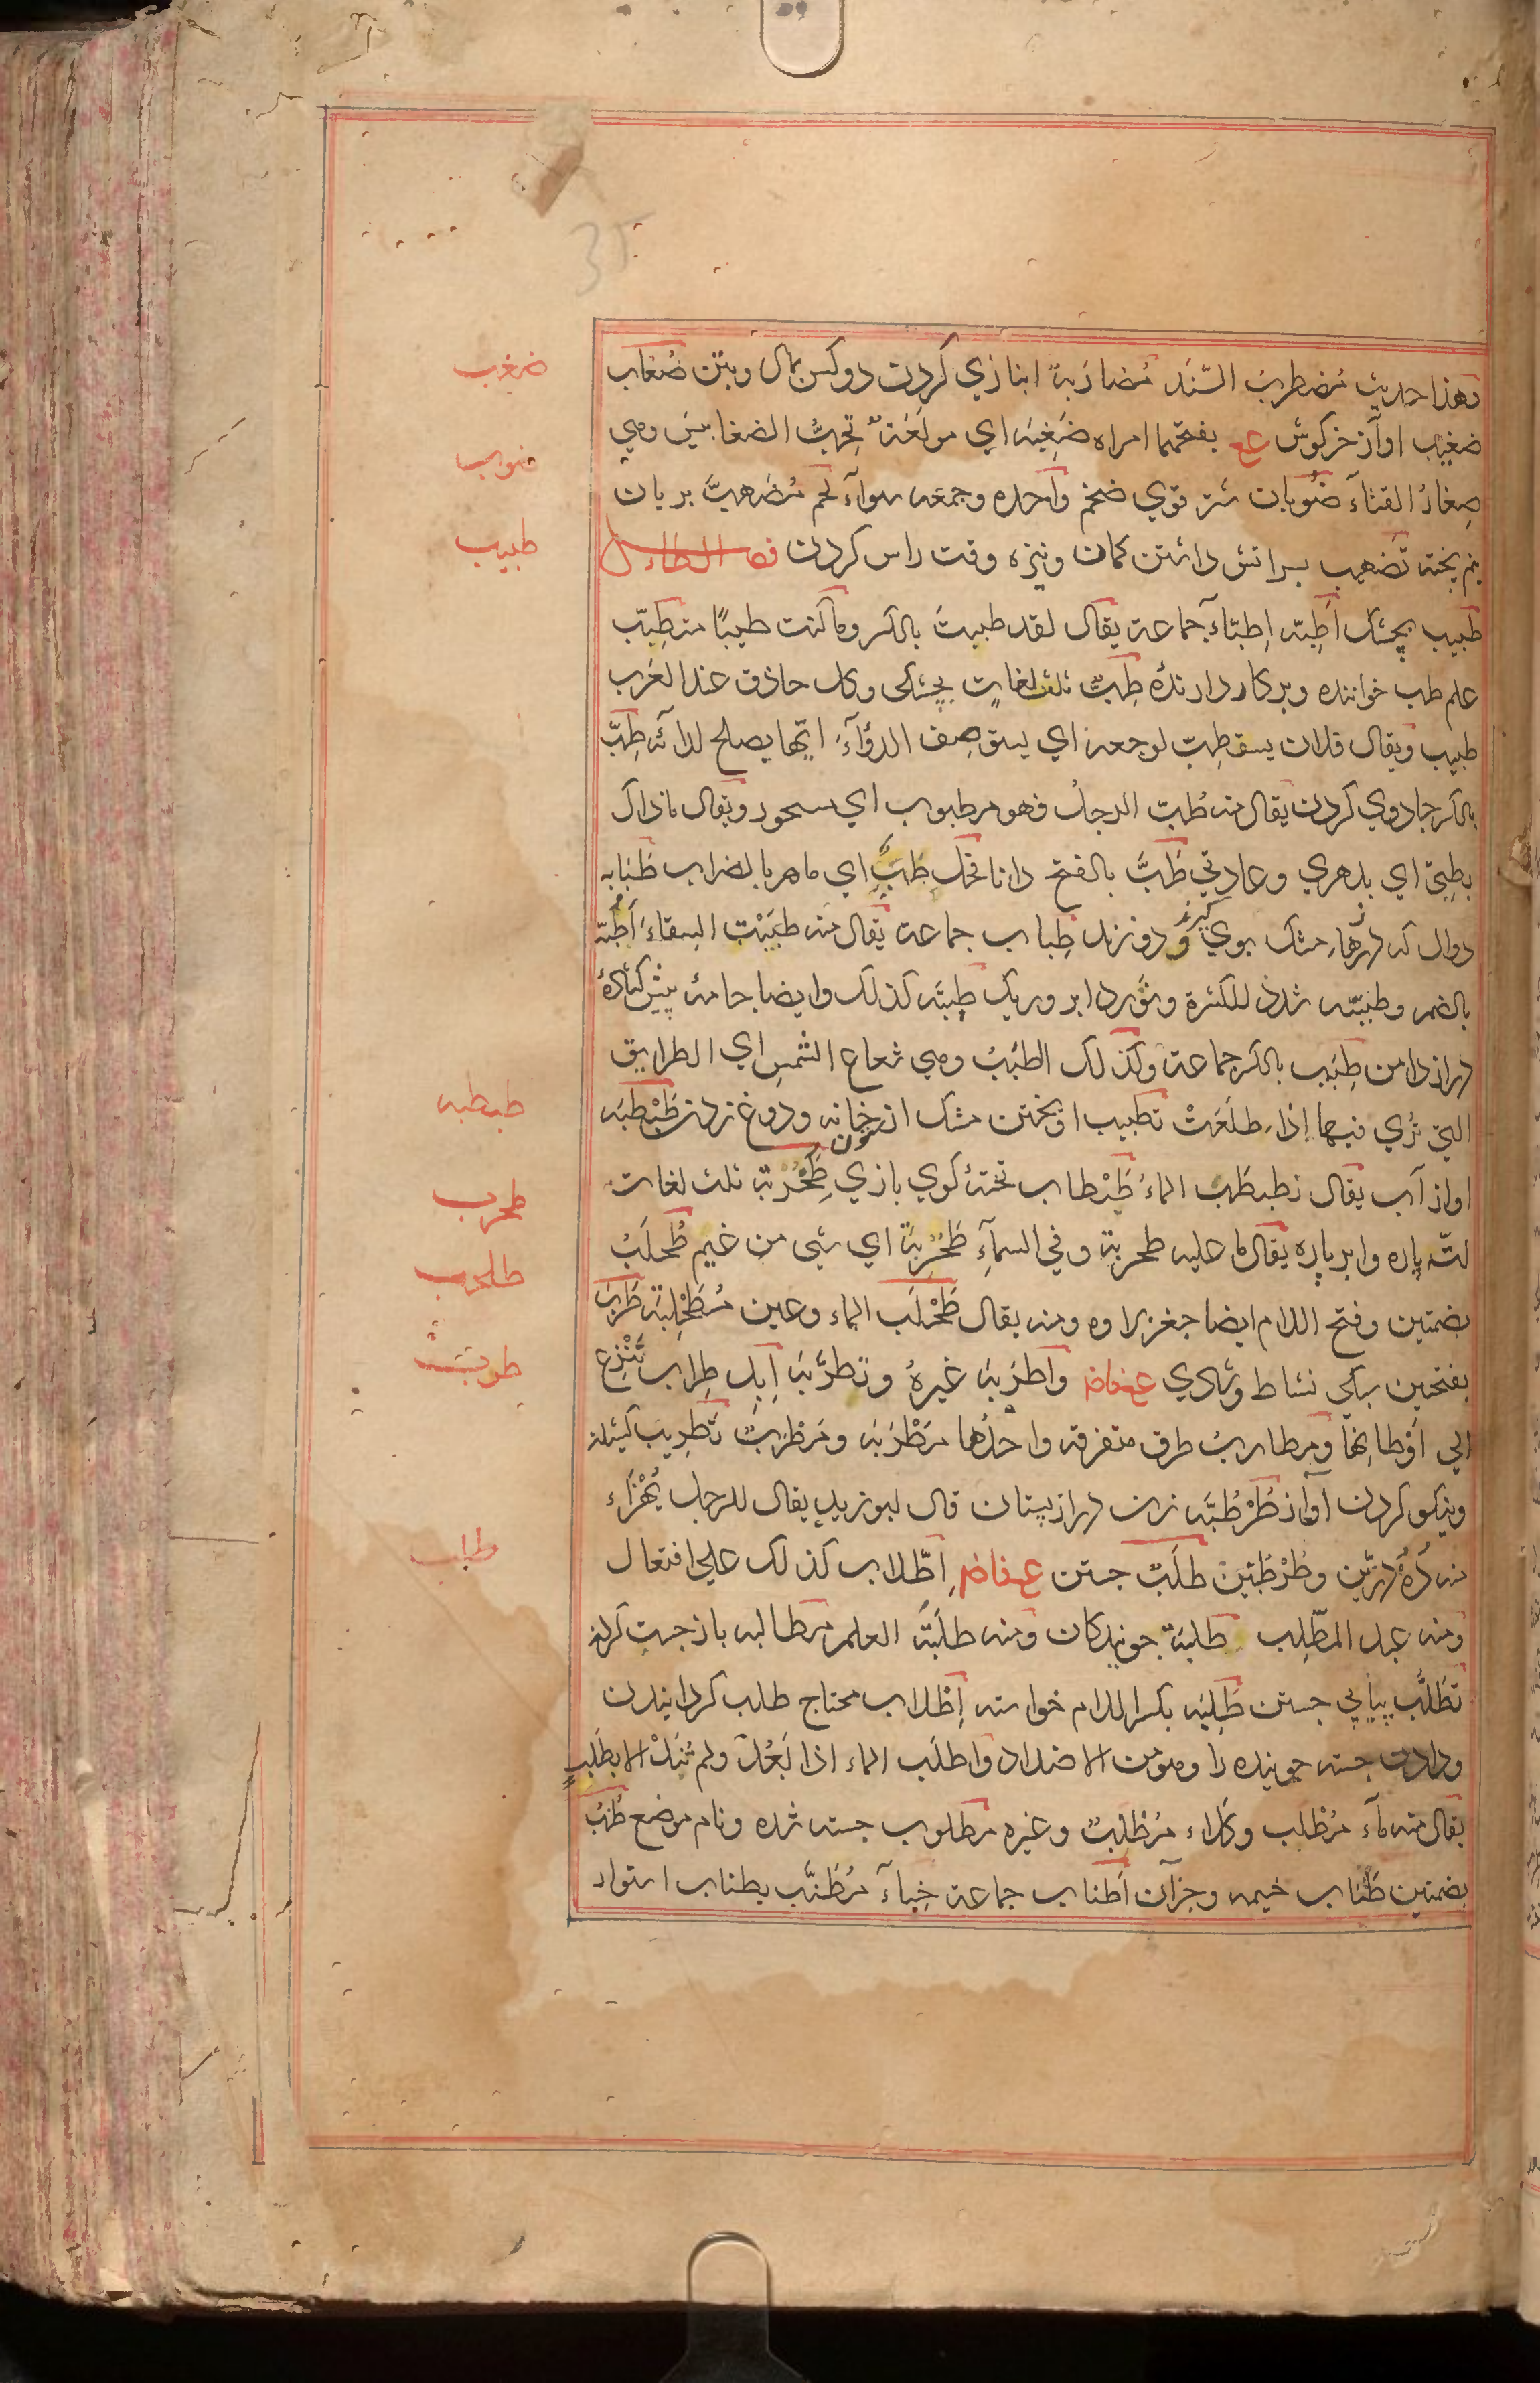 35
وهذا حديث مُضطربُ السَّنَد مُضارَبةً انبازي كردن دو كس بمال وبتن ضُغاب
ضغيب اوآز خركوش عع بفتحهما امراه ضَغِبَه اي مولَعَة تحبُّ الضغابيس وهي
صِغارُ القثاء ضُوبان شتر قوي ضخم واحده وجمعه سوآء لحم مُضهبَّ بريان
نيم پخته تَضهيب براتش داشتن كمان ونيزه وقت راس كردن فصل الطاء
طبيب بجشك اَطِبّه اِطبّاء جماعة يقال لقد طببتَ بالكسر وما كنت طبيبًا متطبِّب
علم طب خواننده وبركار دارنده طِبّ ثلث لغات بجشكى وكل حاذق عند العَرب
طبيب ويقال فلان يستطِبّ لوجعه اي يستوصِف الدوآءَ ايّها يصلح لدآئه طِبّ
بالكسر جادوي كردن يقال منه طُبّ الرجلُ فهو مطبوب اي مسحور ويقال ماذاك
بطِبّي اي بدهري وعادتي طَبّ بالفتح دانا فحل طَبٌّ اي ماهر بالضراب طَبَابه
دوال كه درزهاء مشك بوي كيرند ودوزند طِباب جماعة يقال منه طبَبْت السقاءَ اَطُبّه
بالضم وطبّبته شدد للكثرة ونورد ابر وريك طِبّه كذلك وايضا جامه پيش كشاده
دراز دامن طِبَب بالكسر جماعة وكذلك الطبَبُ وهي شعاع الشمس اي الطرايق
التي تُري فيها إذا طلَعَتْ تطبيب اويختن مشك از خانه ودوغ زدن طَبْطَبَه
ستون
اواز آب يقال تطبطَبَ الماءُ طَبْطاب تخته كوي بازي طحربة ثلث لغات
لتّه پاره وابرپاره يقال ما عليه طحربة وفي السمآءِ طحربة اي شي من غيم طُحلَبُ
بضمتين وفتح اللام ايضا جغزلاوه ومنه يقال طَحْلَب الماء وعين مُطَحْلِبَة طَرَبَ
بفتحتين سبكي نشاط وشادي ع ف اض واطرَبَه غيرهُ وتطرَّبَه اِبل طِراب تَنْزِع
الي اَوْطانِها ومطاربُ طرق متفرقه واحدُها مَطْرَبَه ومَطْرَبٌ تَطريب
ونيكو كردن آوآز طُرْطُبَّه زن دراز پستان قال ابوزيد يقال للرجل يُهْزَاء
منه دُهْدُرَّين وطُرْطُبَّيْن طلَبْ جستن ع ف اض اِطّلاب كذلك علي افتعال
ومنه عبد المطّلِب طلبَة جويندكان ومنه طلَبَة العلم مُطالبه باز جست كردن
تَطَلُّب پياپي جستن طَلِبَه بكسر اللام خواسته اِطْلاب محتاج طلب كردانيدن
ودادن جسته جوينده را وهو من الاضداد واطلَب الماء اذا بَعُدَ ولم يُنَلْ الا بطَلَبٍ
يقال منه مآء مُطْلب وكلاء مُطْلِبٌ وغيره مطلوب جسته شده ونام موضع طُنُبُ
بضمتين طَناب خيمه وجزآن اَطناب جماعة خِباءٌ مُطَنَّب بطناب استوار
ضغب
ضوب
طبيب
طبطبه
طحرب
طلحب
طربت
طلب